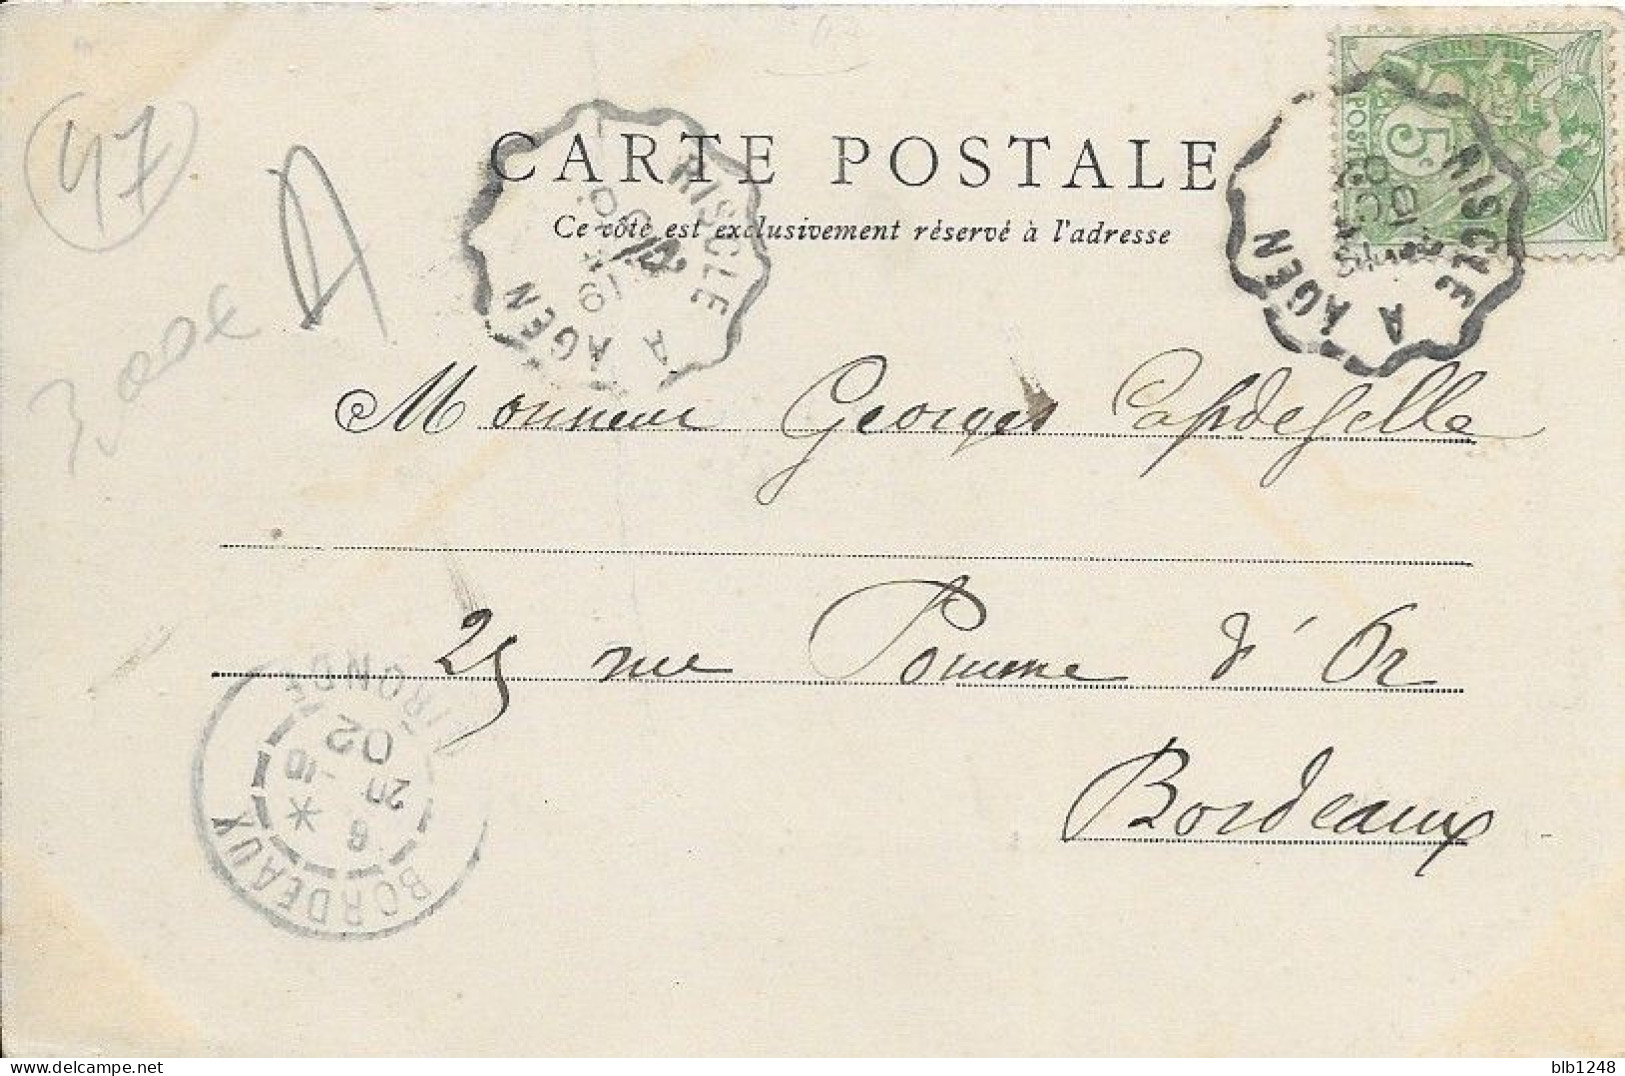 47
CARTE POSTALE
Ce côté est exclusivement réservé à l'adresse
RISCLE A AGEN
19
RISCLE A AGEN
POSTES
5c
3,00€
Monsieur Georges Capdeselle
25 rue Pomme d'Or
Bordeaux
BORDEAUX GIRONDE
6 * 20 -10 02
blb1248